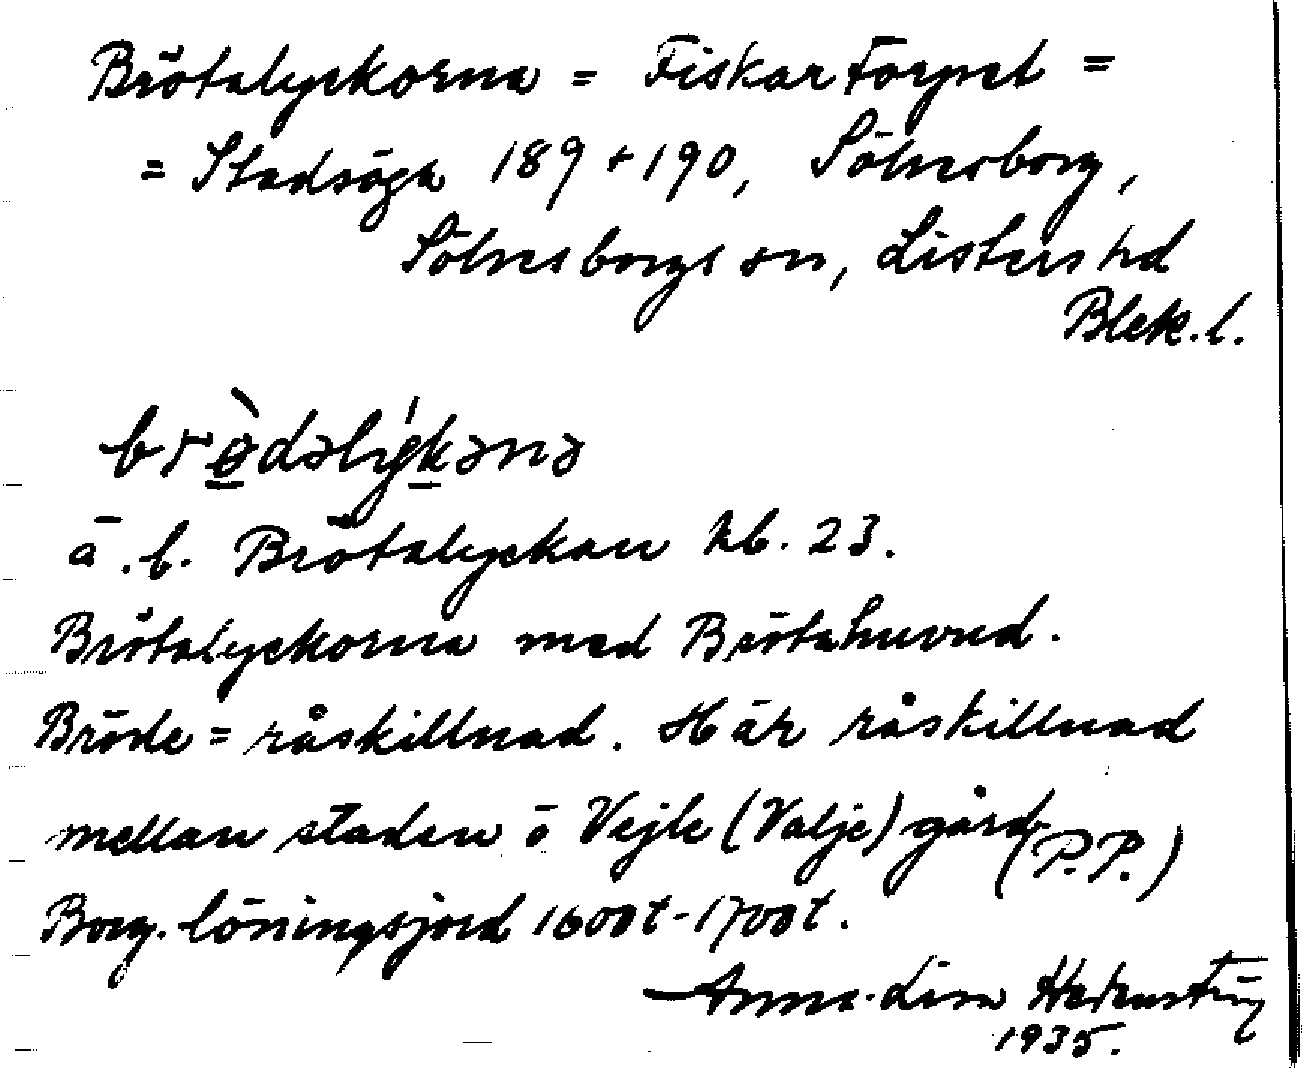 Brötalyckorna = Fiskartorpet =
= Stadsäga 189 + 190, Sölvesborg,
Sölvesborgs sn, Listers hd
Blek. l.
brø̀dəlýkənə
ä. b. Brötalyckan hb. 23.
Brötalyckorna med Brötahuvud.
Bröde = råskillnad. Här råskillnad
mellan staden ö Vejle (Valje) gård
(P.P.)
Borg. löningsjord 1600t - 1700t.
Anna-Lisa
1935.